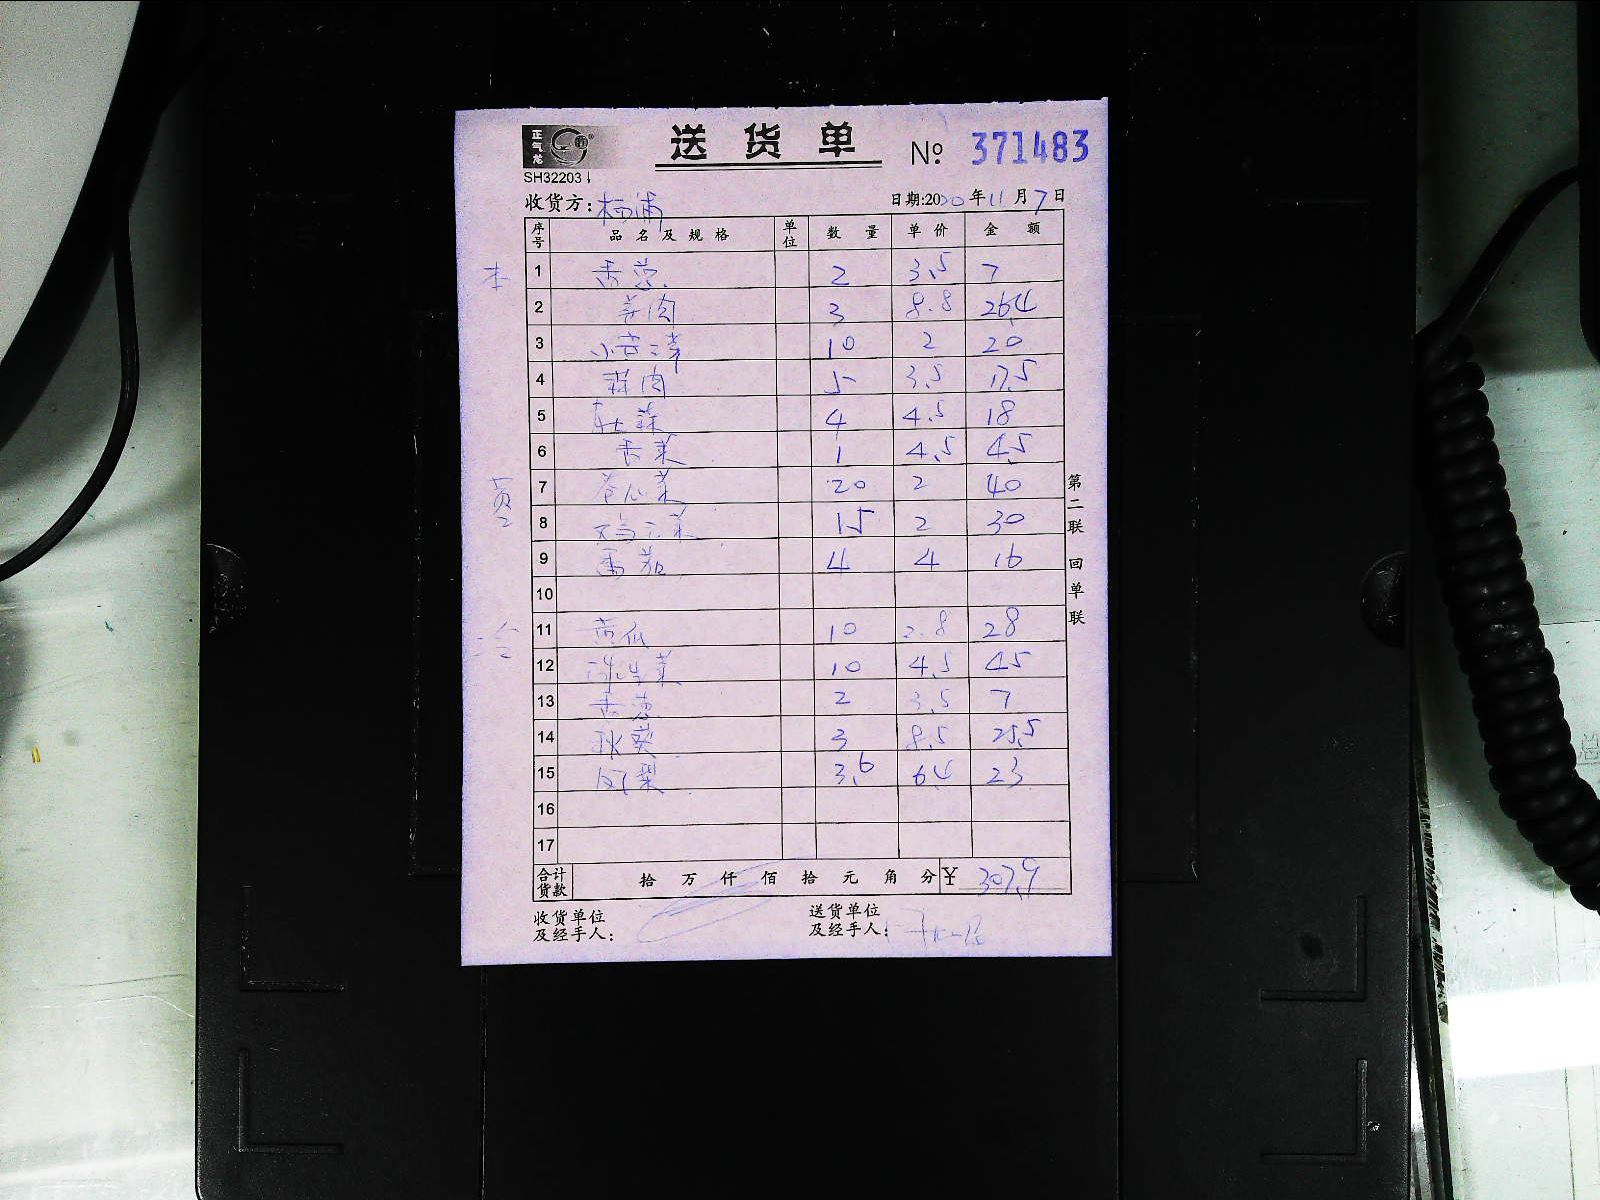 正气龙
送货单 № 371483
SH32203
收货方: 杨浦 日期:2020年11月7日
序号 品名及规格 单位 数量 单价 金额
本 1 香葱 2 3.5 7
2 姜肉 3 8.8 26.4
3 10 2 20
4 蒜肉 5 3.5 17.5
5 4 4.5 18
6 香菜 1 4.5 4.5
7 20 2 40
8 15 2 30
9 番茄 4 4 16
10
11 黄瓜 10 2.8 28
12 球生菜 10 4.5 45
13 香葱 2 3.5 7
14 秋葵 3 8.5 25.5
15 凤梨 3.6 6.4 23
16
17
合计货款 拾 万 仟 佰 拾 元 角 分 ¥ 307.9
收货单位及经手人: 送货单位及经手人:
第二联 回单联